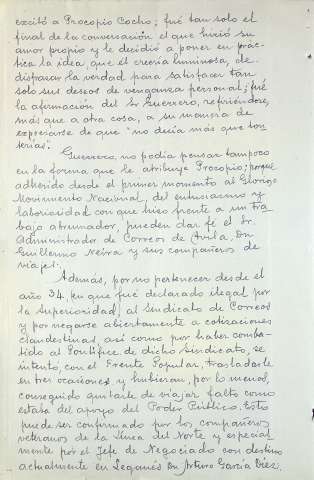 excitó a Procopio Cocho; fué tan solo el
final de la conversación el que hirió su
amor propio y le decidió a poner en prác-
tica la idea, que él creería luminosa, de
disfrazar la verdad para satisfacer tan
solo sus deseos de venganza personal; fué
la afirmación del Sr Guerrero, refiriéndose,
más que a otra cosa, a su manera de
expresarse de que "no decía más que ton
terías".
Guerrero, no podía pensar tampoco
en la forma que le atribuye Procopio; porque
adherido desde el primer momento al Glorioso
Movimiento Nacional, del entusiasmo y
laboriosidad con que hizo frente a un tra
bajo abrumador, pueden dar fé el Sr.
Administrador de Correos de Avila, Don
Guillermo Neira y sus compañeros de
viajes.
Además, por no pertenecer desde el
año 34, en que fué declarado ilegal por
la Superioridad, al Sindicato de Correos
y por negarse abiertamente a cotizaciones
clandestinas, así como por haber comba-
tido al Pontífice de dicho Sindicato, se
intentó, con el Frente Popular, trasladarle
en tres ocasiones, y hubieran, por lo menos,
conseguido quitarle de viajar falto como
estaba del apoyo del Poder Público. Esto
puede ser confirmado por los compañeros
veteranos de la Línea del Norte y especial
mente por el Jefe de Negociado con destino
actualmente en Leganés Don Arturo García Diez.